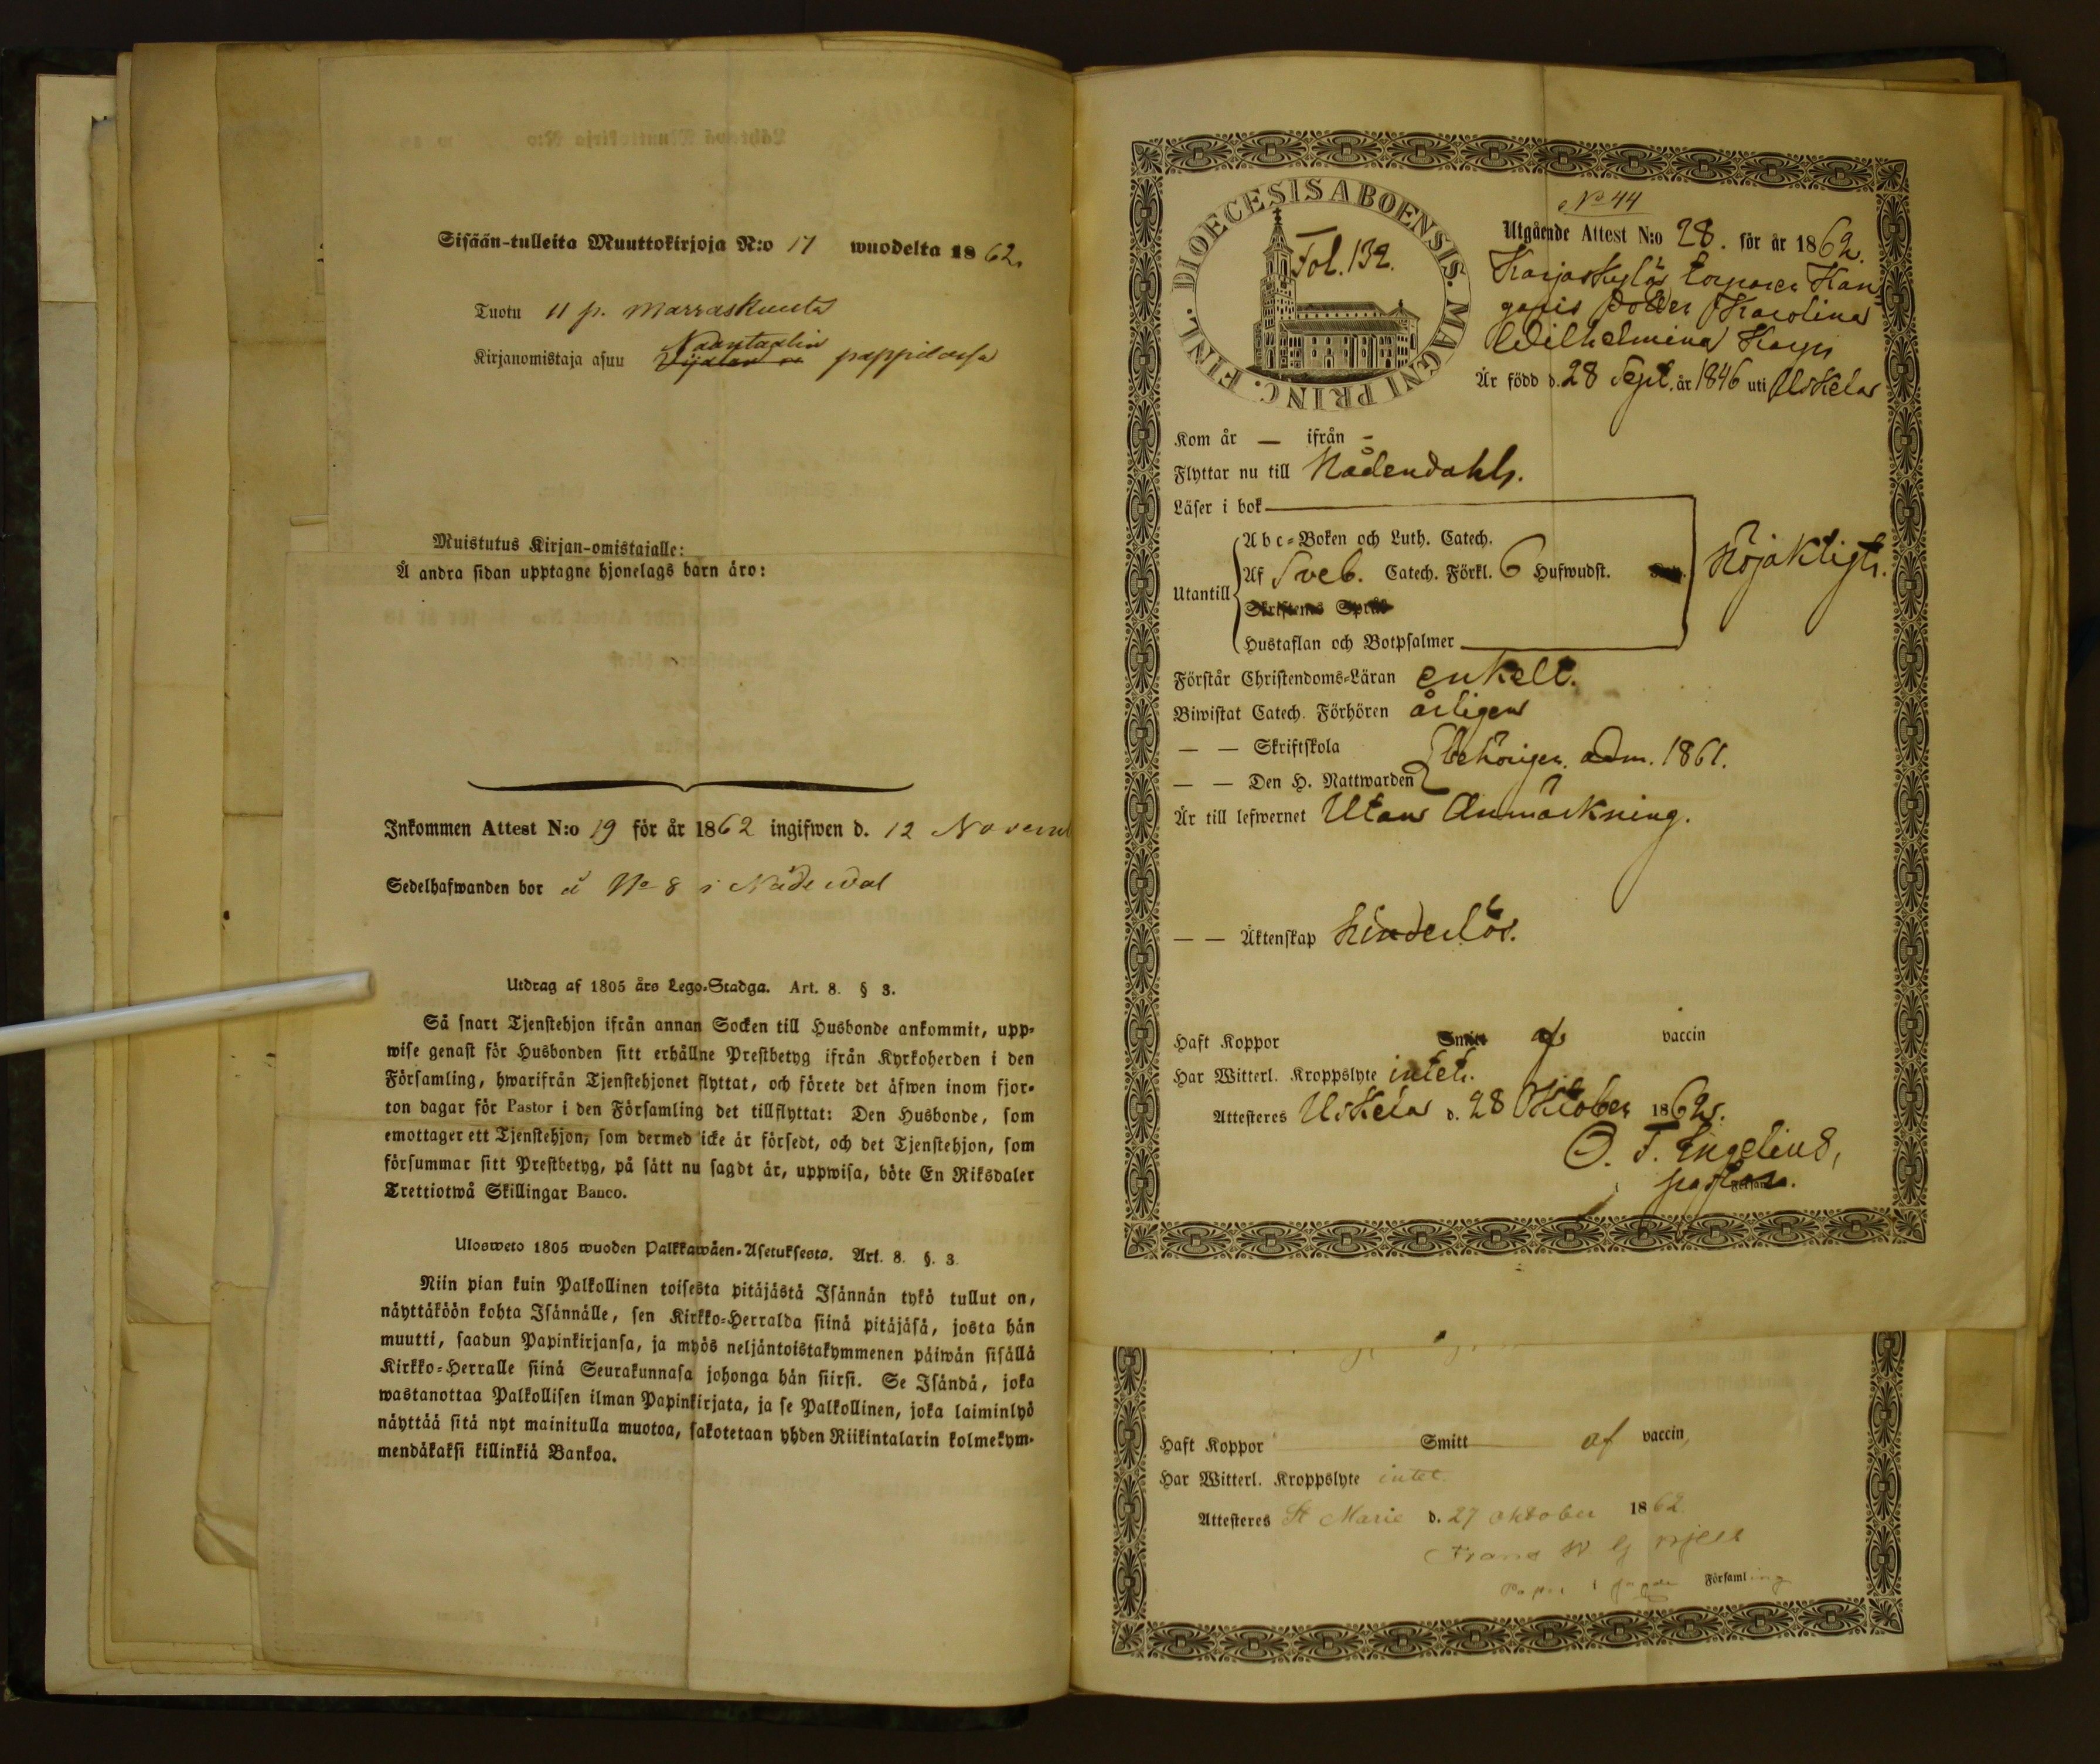 Sisään-tulleita Muuttokirjoja N:o 17 wuodelta 1862.
Tuotu 11 p. marraskuuta
Naantalin
Kirjanomistaja asuu pappilassa
Muistutus Kirjan-omistajalle:
Å andra sidan upptagne hjonelags barn äro:
Inkommen Attest N:o 19 för år 1862 ingifwen d. 12 Novem
Sedelhafwanden bor å No 8 i Nådendal
Utdrag af 1805 års Lego-Stadga. Art. 8. § 3.
Så snart Tjenstehjon ifrån annan Socken till Husbonde ankommit, upp-
wise genast för Husbonden sitt erhållne Prestbetyg ifrån Kyrkoherden i den
Församling, hwarifrån Tjenstehjonet flyttat, och förete det äfwen inom fjor-
ton dagar för Pastor i den Församling det tillflyttat: Den Husbonde, som
emottager ett Tjenstehjon, som dermed icke är försedt, och det Tjenstehjon, som
försummar sitt Prestbetyg, på sätt nu sagdt är, uppwisa, böte En Riksdaler
Trettiotwå Skillingar Banco.
Ulosweto 1805 wuoden Palkkawäen-Asetuksesta. Art. 8. §. 3.
Niin pian kuin Palkollinen toisesta pitäjästä Isännän tykö tullut on,
näyttäköön kohta Isännälle, sen Kirkko-Herralda siinä pitäjäsä, josta hän
muutti, saadun Papinkirjansa, ja myös neljäntoistakymmenen päiwän sisällä
Kirkko-Herralle siinä Seurakunnasa johonga hän siirsi. Se Isändä, joka
wastanottaa Palkollisen ilman Papinkirjata, ja se Palkollinen, joka laiminlyö
näyttää sitä nyt mainitulla muotoa, sakotetaan yhden Riikintalarin kolmekym-
mendäkaksi killinkiä Bankoa.
DIOECESIS ABOENSIS. MAGNI PRINC. FINL.
Fol. 132.
No 44
Utgående Attest N:o 28. för år 1862.
Karjaskylä torpare Kan
gapis dotter Karolina
Wilhelmina Karps
Är född d. 28 Sept. år 1846 uti Uskela
Kom år — ifrån -
Flyttar nu till Nådendahl.
Läser i bok
Abc-Boken och Luth. Catech.
Utantill
Af Sveb. Catech. Förkl. 6 Hufwudst.
Skriftenes Språk
Hustaflan och Botpsalmer
höjaktligt.
Förstår Christendoms-Läran enkelt.
Biwistat Catech. Förhören årligen
— — Skriftskola
behörigen. adm. 1861.
— — Den H. Nattwarden
Är till lefwernet Utan Anmärkning.
— — Äktenskap hinderlös.
Haft Koppor Smitt af vaccin
Har Witterl. Kroppslyte intet.
Attesteres Uskela d. 28 Oktober 1862.
O. F. Engelius,
pastor.
Haft Koppor Smitt af vaccin,
Har Witterl. Kroppslyte intet.
Attesteres St Marie d. 27 oktober 1862.
Frans
Församling